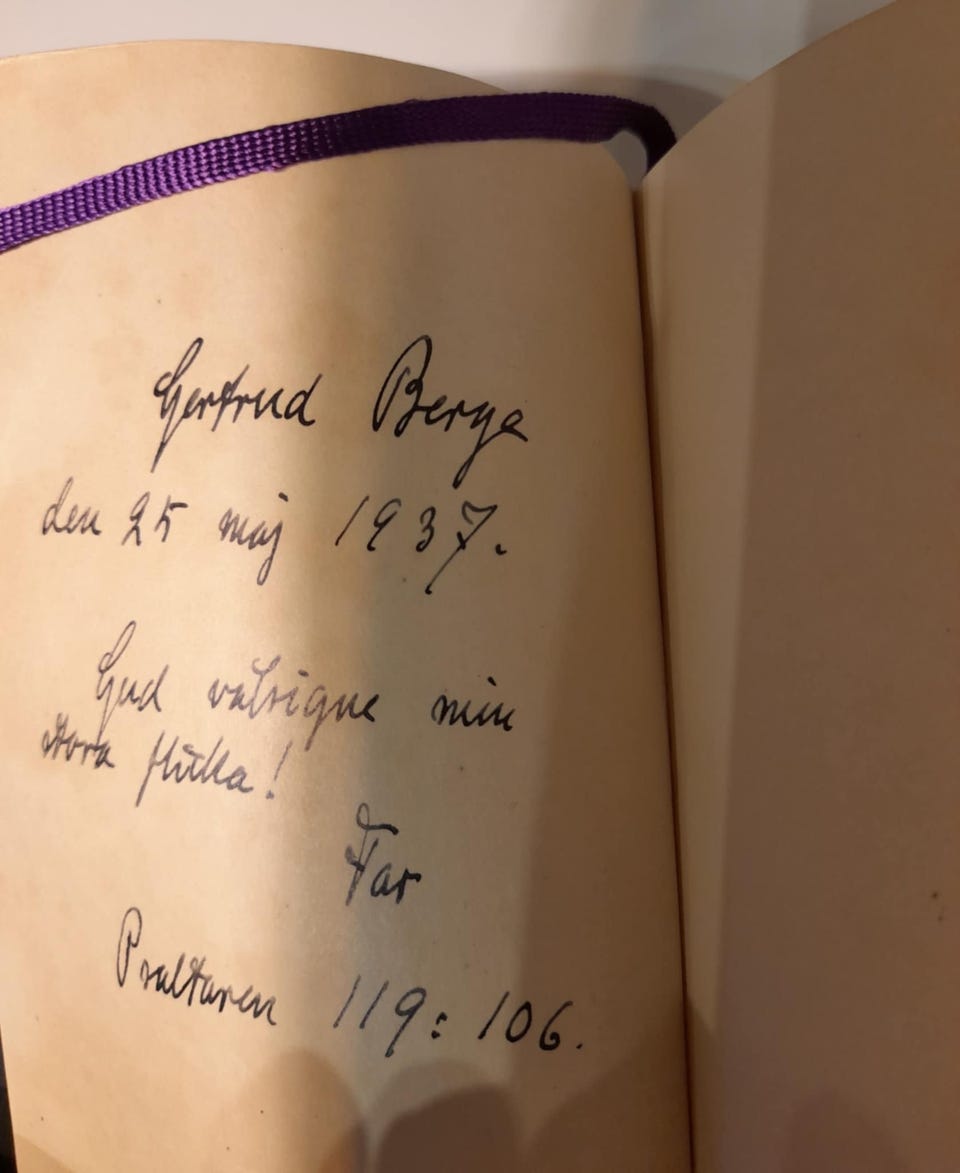 Gertrud Berge
den 25 maj 1937.
Gud välsigne min
stora flicka!
Far
Psaltaren 119:106.